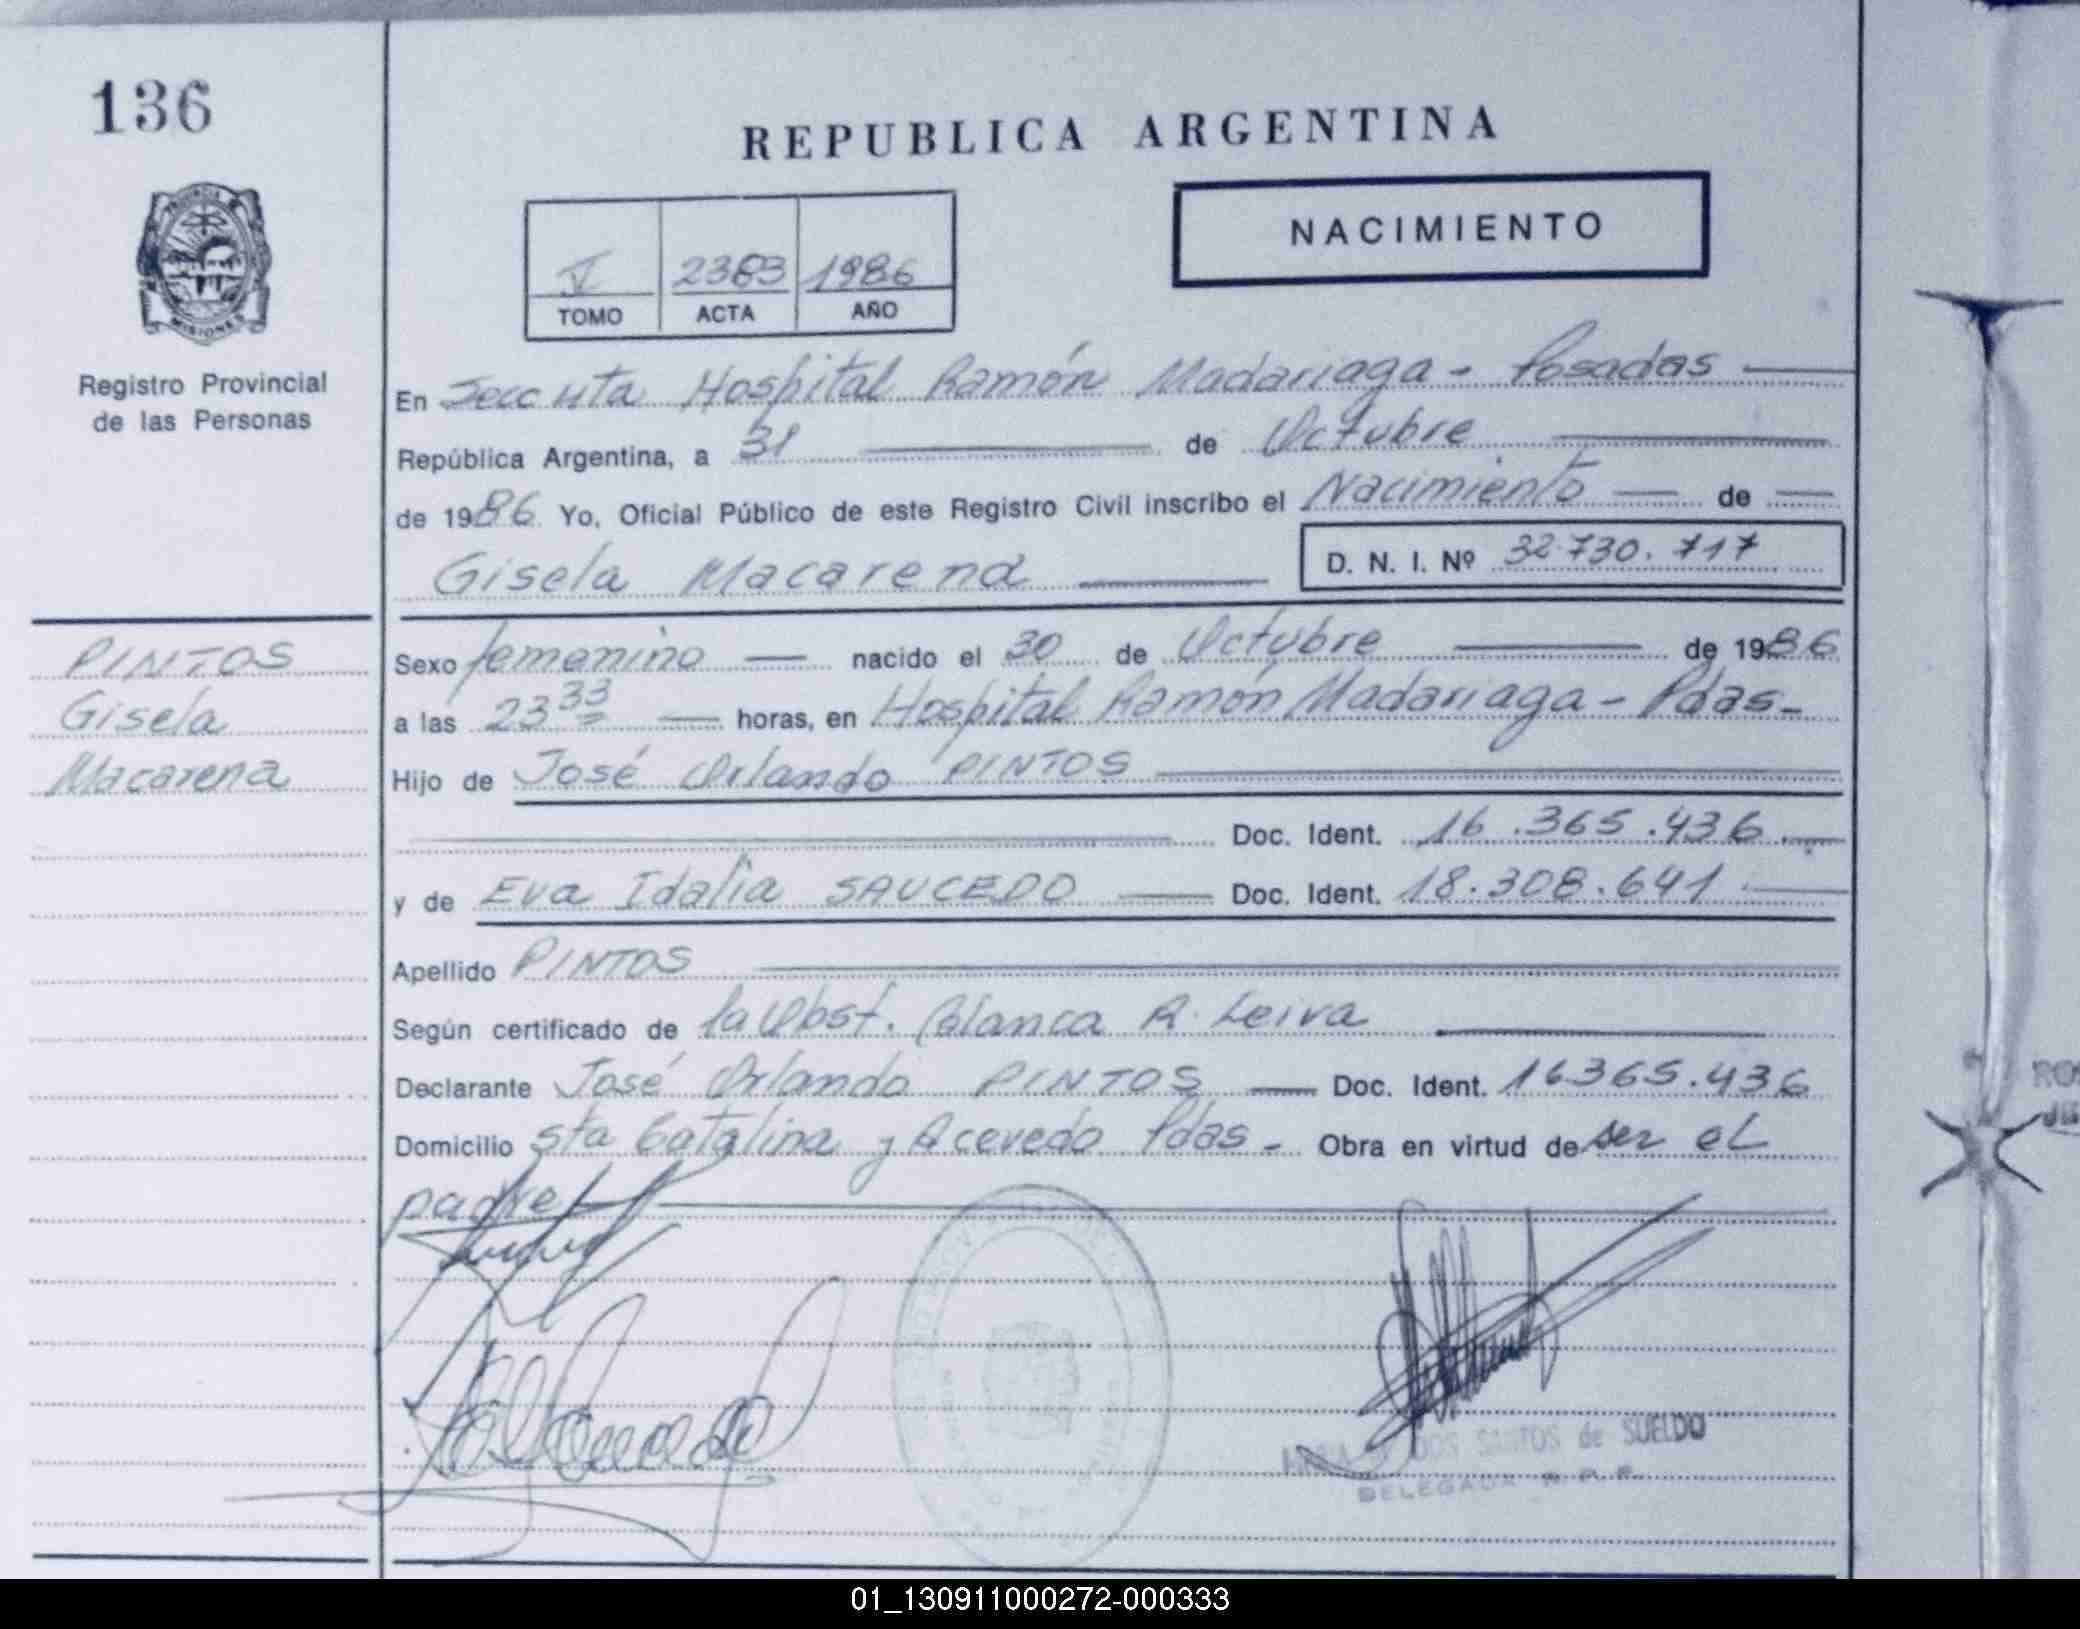 136
REPUBLICA ARGENTINA
NACIMIENTO
V 2383 1986
TOMO ACTA AÑO
PROVINCIA
MISIONES
Registro Provincial
de las Personas
En Secc uta Hospital Ramón Madariaga - Posadas
República Argentina, a 31 de Octubre
de 1986 Yo, Oficial Público de este Registro Civil inscribo el Nacimiento de
Gisela Macarena D. N. I. Nº 32.730.717
PINTOS
Gisela
Macarena
Sexo femenino nacido el 30 de Octubre de 1986
a las 23 33 horas, en Hospital Ramón Madariaga - Pdas-
Hijo de José Orlando PINTOS
Doc. Ident. 16.365.436
y de Eva Idalia SAUCEDO Doc. Ident. 18.308.641
Apellido PINTOS
Según certificado de la Obst. Blanca R. Leiva
Declarante José Orlando PINTOS Doc. Ident. 16365.436
Domicilio Sta Catalina y Acevedo Pdas - Obra en virtud de ser el
padre
DOS SANTOS de SUELDO
DELEGADA R. P. P.
01_130911000272-000333